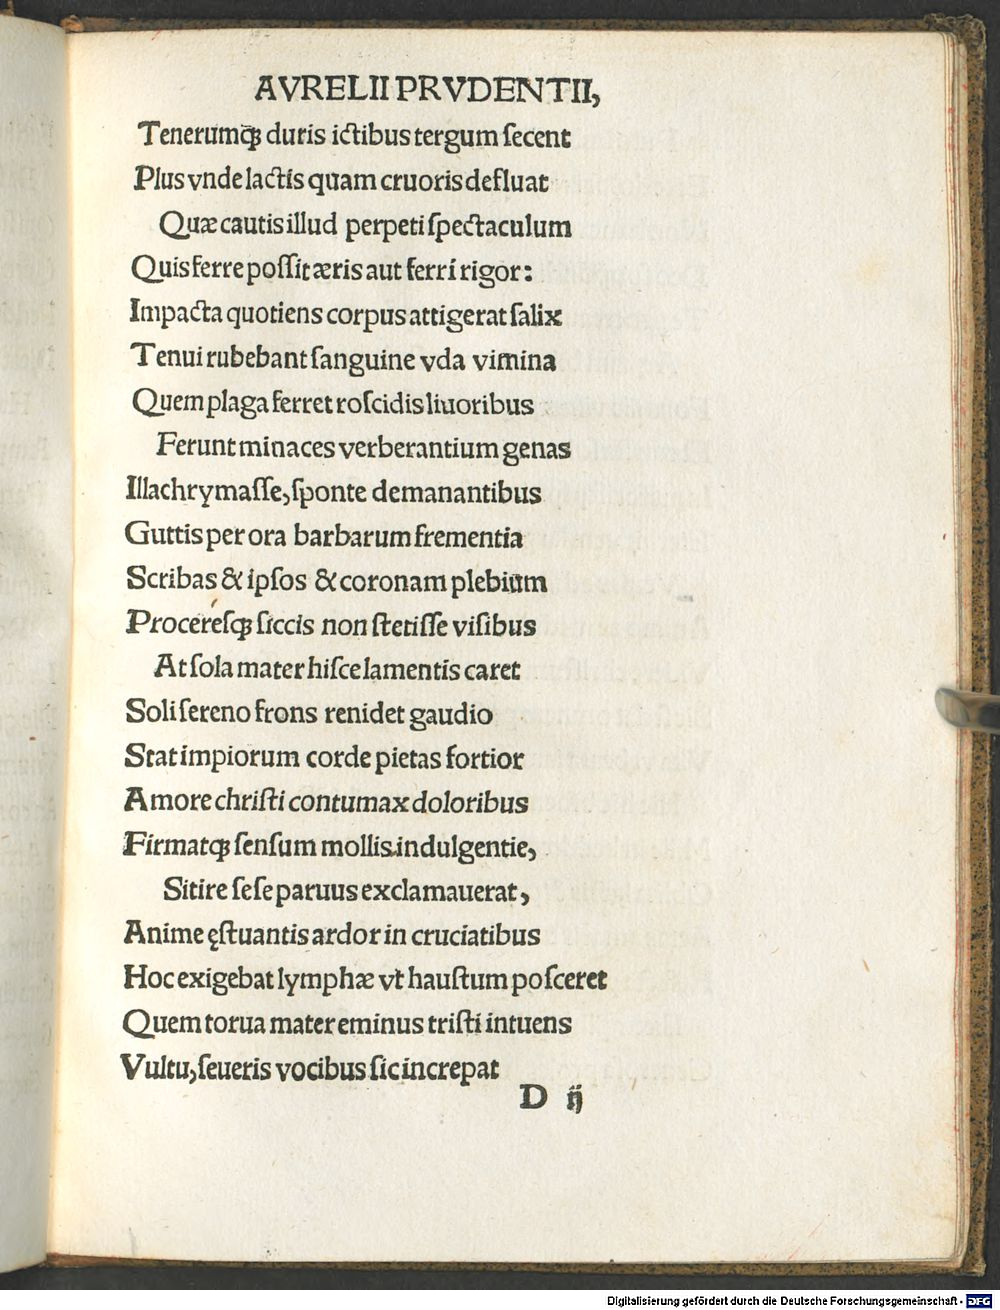 AVRELII PRVDENTII,
Tenerumqꝫ duris ictibus tergum ſecent
Plus vnde lactis quam cruoris defluat
Quæ cautis illud perpeti ſpectaculum
Quis ferre poſſit æris aut ferri rigor:
Impacta quotiens corpus attigerat ſalix
Tenui rubebant ſanguine vda vimina
Quem plaga ferret roſcidis liuoribus
Ferunt minaces verberantium genas
Illachrymaſſe, ſponte demanantibus
Guttis per ora barbarum frementia
Scribas & ipſos & coronam plebium
Procereſqꝫ ſiccis non ſtetiſſe viſibus
At ſola mater hiſce lamentis caret
Soli ſereno frons renidet gaudio
Stat impiorum corde pietas fortior
Amore chriſti contumax doloribus
Firmatqꝫ ſenſum mollis indulgentie,
Sitire ſeſe paruus exclamauerat,
Anime ęſtuantis ardor in cruciatibus
Hoc exigebat lymphæ vt hauſtum poſceret
Quem torua mater eminus triſti intuens
Vultu, ſeueris vocibus ſic increpat
D ij
Digitalisierung gefördert durch die Deutsche Forschungsgemeinschaft - DFG